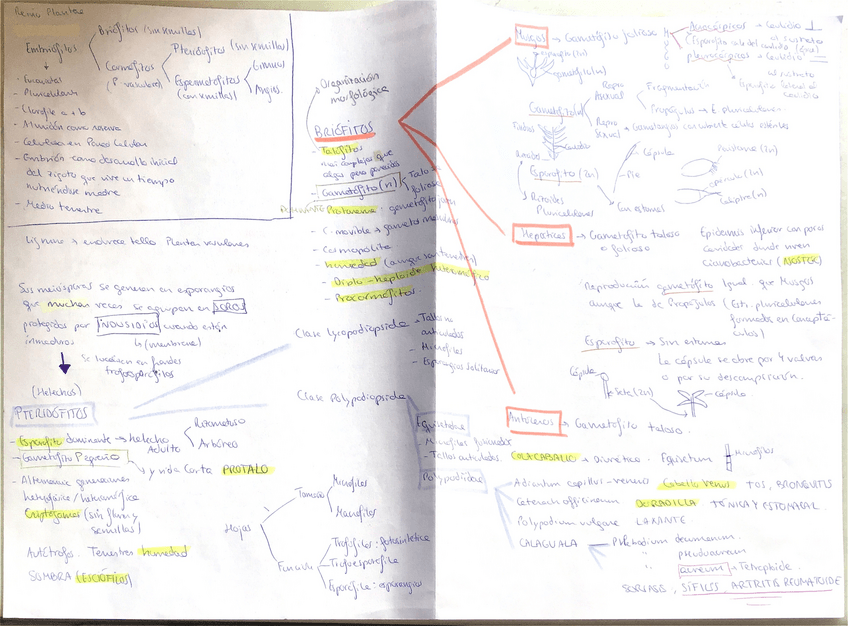 Reino Plantas
Embriófitos
Briófitos (sin semillas)
Cormófitos
(P. vasculares)
Pteridófitos (sin semillas)
Espermatófitos
(con semillas)
Gimnos
Angios
- Eucariotas
- Pluricelulares
- Clorofila a + b
- Almidón como reserva
- Celulosa en Pared Celular
- Embrión como desarrollo inicial
del zigoto que vive un tiempo
nutriéndose madre
- Medio terrestre
Lignina → endurece tallo Plantas vasculares
Sus meiosporas se generan en esporangios
que muchas veces se agrupan en SOROS
protegidos por INDUSIOS cuando están
inmaduros
(membrana)
Se localizan en frondes
trofoesporófitos
(Helechos)
PTERIDÓFITOS
- Esporófito dominante → helecho
Adulto
Rizomatoso
Arbóreo
- Gametófito Pequeño
y vida Corta PROTALO
- Alternancia generaciones
Criptógamas (sin flores y
semillas)
Autótrofos. Terrestres humedad
SOMBRA (ESCIÓFILOS)
Hojas
Tamaño
Micrófilos
Macrófilos
Función
Trofófilos: fotosintética
Trofoesporófilo
Esporófilo: esporangios
Organización
morfológica
BRIÓFITOS
- Talófitos
más complejos que
algas pero parecidos
- Gametófito (n)
Talo
folioso
Protonema: gametófito joven
- Cosmopolita
- humedad
- Diplo-haploide heteromórfico
- Procormófitos.
Clase Lycopodiopsida
- Tallos no
articulados
- Micrófilos
- Esporangios solitarios
Clase Polypodiopsida
Equisetidae
- Micrófilos
- Tallos articulados.
COLA CABALLO → Diurético. Equisetum
Micrófilos
Polypodiidae
Adiantum capillus-veneris Cabello Venus TOS, BRONQUITIS
Ceterach officinarum DORADILLA TÓNICA Y ESTOMACAL
Polypodium vulgare LAXANTE
CALAGUALA → Phlebodium decumanum
" pseudoaureum
" aureum → Temaphoide
SORIASIS, SÍFILIS, ARTRITIS REUMATOIDE
Musgos → Gametófito folioso
Acrocárpicos → Caulidio ⊥
al sustrato
(Esporófito sale del caulidio (Ápice)
pleurocárpicos → Caulidio
al sustrato
Esporófito lateral al
caulidio
esporofito (2n)
gametófito (n)
Gametófito (n)
Repro
Asexual
Fragmentación
Propágulos → E pluricelulares
Repro
Sexual
Filidios
Caulidio
Rizoides
Esporófito (2n)
Cápsula
Pie
Con estomas
→ Rizoides
Pluricelulares
Peristoma (2n)
opérculo (2n)
Caliptra (n)
Hepáticas → Gametófito taloso
o folioso
Epidermis inferior con poros
cavidades donde viven
cianobacterias (NOSTOC)
Reproducción gametófito Igual que Musgos
aunque la de Propágulos (Estr. pluricelulares
formadas en Conceptá-
culos)
Esporófito → Sin estomas
La cápsula se abre por 4 valvas
o por su descomposición.
Cápsula
Seta (2n)
→ cápsula
Antoceros → Gametófito taloso.